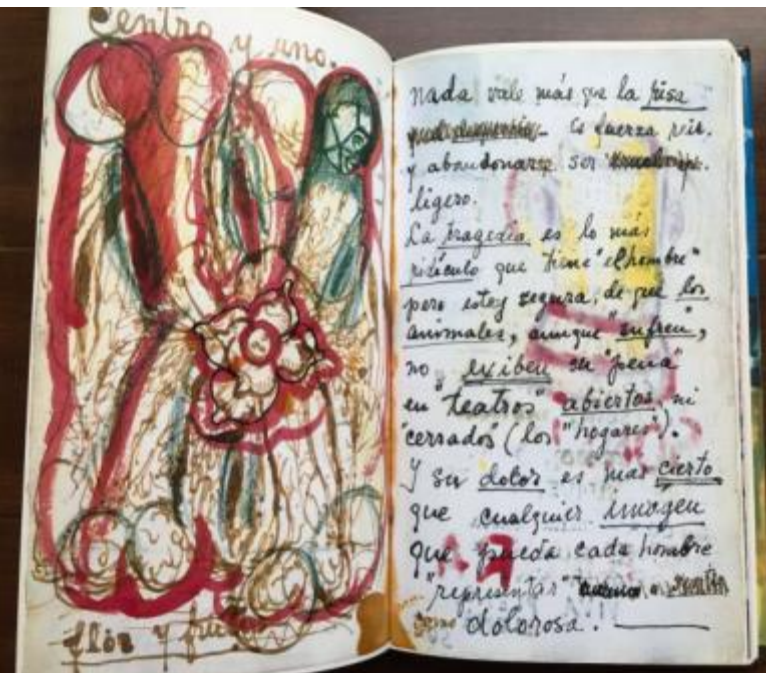 Centro y uno.
flor y fruto
nada vale más que la risa
Es fuerza reir.
y abandonarse ser
ligero.
La tragedia es lo más
ridículo que tiene "el hombre"
pero estoy segura, de que los
animales, aunque "sufren",
no exiben su "pena"
en "teatros" abiertos, ni
"cerrados" (los "hogares").
Y su dolor es mas cierto
que cualquier imagen
que pueda cada hombre
"representar"
como dolorosa.